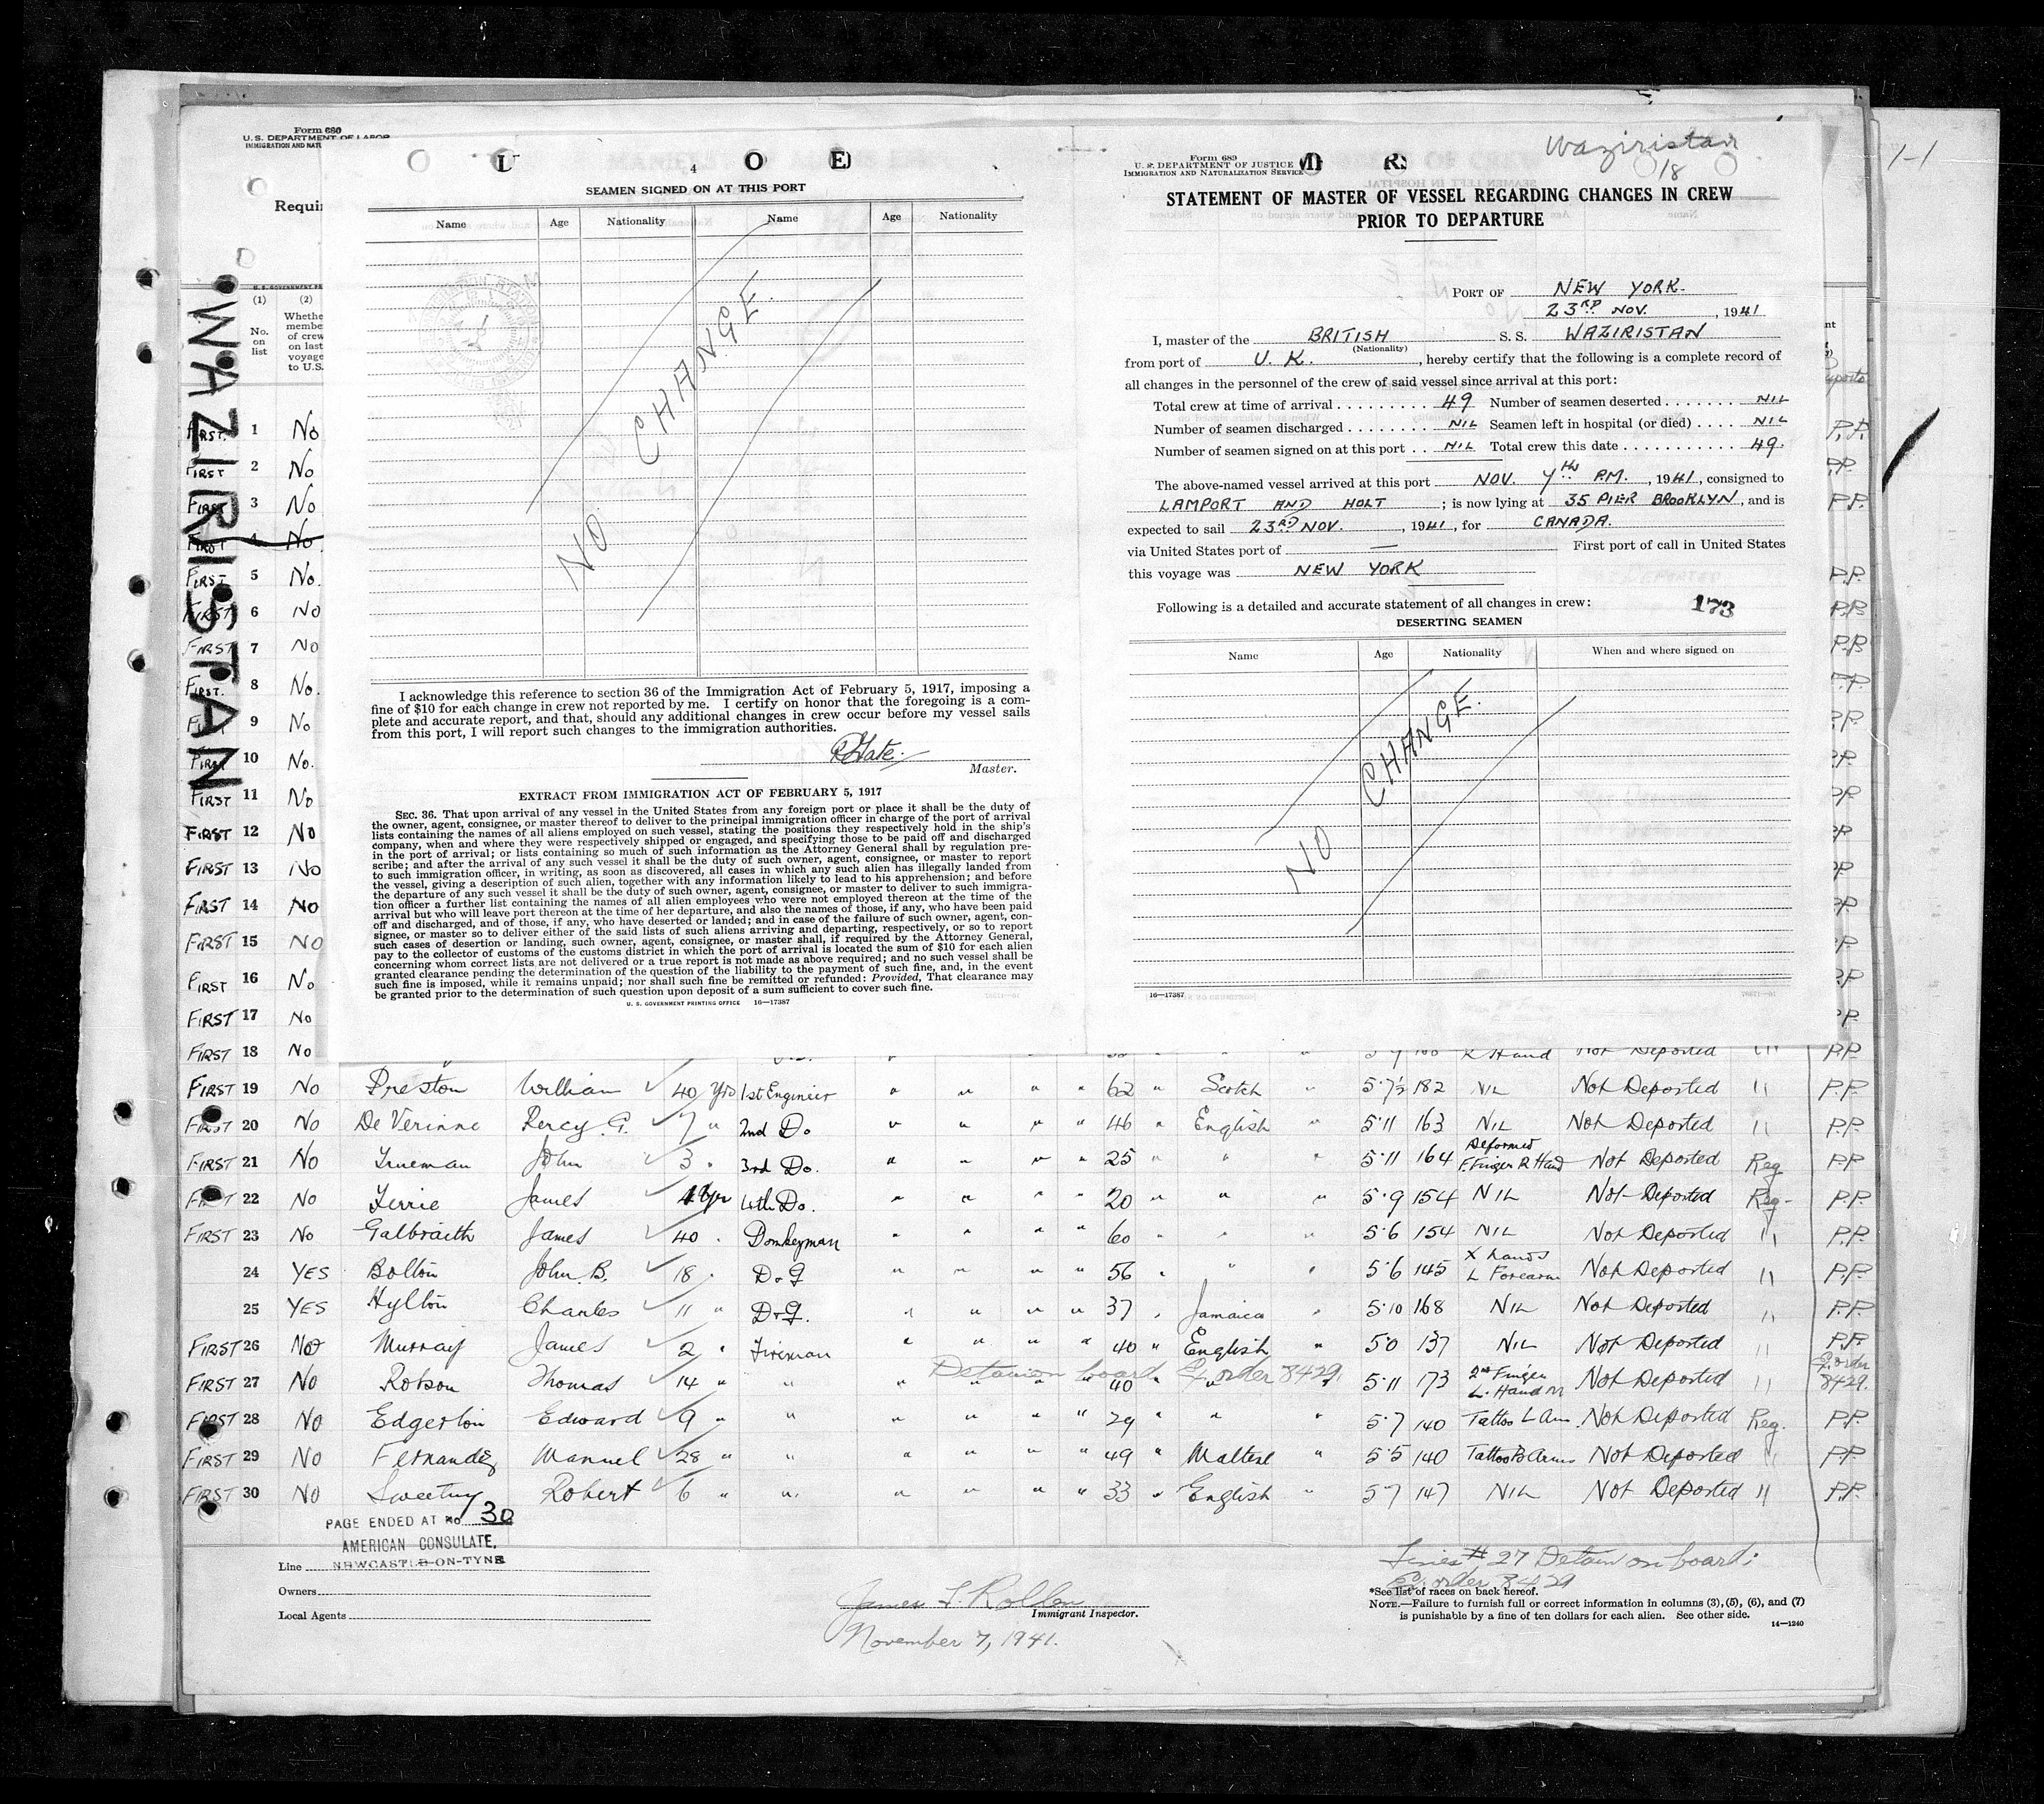 Form 680
U. S. DEPARTMENT OF LABOR
IMMIGRATION AND NAT
Requir
WAZIRISTAN
(1) (2)
No. on list
Whethe
membe
of crew
on last
voyage
to U.S.
FIRST 1 No
FIRST 2 No
FIRST 3 No
FIRST 4 No
FIRST 5 No.
FIRST 6 NO
FIRST 7 NO
FIRST. 8 No.
FIRST 9 No
FIRST 10 No.
FIRST 11 No
FIRST 12 No
FIRST 13 No
FIRST 14 No
FIRST 15 NO
FIRST 16 No
FIRST 17 No
FIRST 18 No
L O E
4
SEAMEN SIGNED ON AT THIS PORT
Name Age Nationality Name Age Nationality
NO CHANGE.
I acknowledge this reference to section 36 of the Immigration Act of February 5, 1917, imposing a
fine of $10 for each change in crew not reported by me. I certify on honor that the foregoing is a com-
plete and accurate report, and that, should any additional changes in crew occur before my vessel sails
from this port, I will report such changes to the immigration authorities.
Master.
EXTRACT FROM IMMIGRATION ACT OF FEBRUARY 5, 1917
SEC. 36. That upon arrival of any vessel in the United States from any foreign port or place it shall be the duty of
the owner, agent, consignee, or master thereof to deliver to the principal immigration officer in charge of the port of arrival
lists containing the names of all aliens employed on such vessel, stating the positions they respectively hold in the ship's
company, when and where they were respectively shipped or engaged, and specifying those to be paid off and discharged
in the port of arrival; or lists containing so much of such information as the Attorney General shall by regulation pre-
scribe; and after the arrival of any such vessel it shall be the duty of such owner, agent, consignee, or master to report
to such immigration officer, in writing, as soon as discovered, all cases in which any such alien has illegally landed from
the vessel, giving a description of such alien, together with any information likely to lead to his apprehension; and before
the departure of any such vessel it shall be the duty of such owner, agent, consignee, or master to deliver to such immigra-
tion officer a further list containing the names of all alien employees who were not employed thereon at the time of the
arrival but who will leave port thereon at the time of her departure, and also the names of those, if any, who have been paid
off and discharged, and of those, if any, who have deserted or landed; and in case of the failure of such owner, agent, con-
signee, or master so to deliver either of the said lists of such aliens arriving and departing, respectively, or so to report
such cases of desertion or landing, such owner, agent, consignee, or master shall, if required by the Attorney General,
pay to the collector of customs of the customs district in which the port of arrival is located the sum of $10 for each alien
concerning whom correct lists are not delivered or a true report is not made as above required; and no such vessel shall be
granted clearance pending the determination of the question of the liability to the payment of such fine, and, in the event
such fine is imposed, while it remains unpaid; nor shall such fine be remitted or refunded: Provided, That clearance may
be granted prior to the determination of such question upon deposit of a sum sufficient to cover such fine.
U. S. GOVERNMENT PRINTING OFFICE 16—17387
Waziristan
18
1-1
Form 689
U. S. DEPARTMENT OF JUSTICE
IMMIGRATION AND NATURALIZATION SERVICE
M R
STATEMENT OF MASTER OF VESSEL REGARDING CHANGES IN CREW
PRIOR TO DEPARTURE
PORT OF NEW YORK.
23RD NOV. , 1941
I, master of the BRITISH S. S. WAZIRISTAN
(Nationality)
from port of U. K. , hereby certify that the following is a complete record of
all changes in the personnel of the crew of said vessel since arrival at this port:
Total crew at time of arrival . . . . . . . . . 49 Number of seamen deserted . . . . . . . NIL
Number of seamen discharged . . . . . . . NIL Seamen left in hospital (or died) . . . . NIL
Number of seamen signed on at this port . . NIL Total crew this date . . . . . . . . . . . 49.
The above-named vessel arrived at this port NOV. 7th P.M. , 1941, consigned to
LAMPORT AND HOLT ; is now lying at 35 PIER BROOKLYN, and is
expected to sail 23RD NOV. , 1941, for CANADA.
via United States port of — First port of call in United States
this voyage was NEW YORK
Following is a detailed and accurate statement of all changes in crew: 173
DESERTING SEAMEN
Name Age Nationality When and where signed on
NO CHANGE.
16—17387
FIRST 19 No Preston William 40 Yrs 1st Engineer " " " " 62 " Scotch " 5·7½ 182 NIL Not Deported " P.P.
FIRST 20 No De Verinne Percy. G. 7 " 2nd Do " " " " 46 " English " 5·11 163 NIL Not Deported " P.P.
FIRST 21 No Trueman John 3 " 3rd Do. " " " " 25 " " " 5·11 164 Deformed F. Finger R Hand Not Deported Reg P.P
FIRST 22 No James 4th Do. " " " " 20 " " " 5·9 154 NIL Not Deported Reg- P.P.
FIRST 23 No Galbraith James 40 " Donkeyman " " " " 60 " " " 5·6 154 NIL Not Deported " P.P.
24 YES Bolton John. B. 18 " D & G " " " " 56 " " " 5·6 145 X hands L Forearm Not Deported " P.P.
25 YES Hylton Charles 11 " D & G. " " " " 37 " Jamaica " 5·10 168 NIL Not Deported " P.P.
FIRST 26 Not Murray James 2 " Fireman " " " " 40 " English " 5·0 137 NIL Not Deported " P.P.
Detain on board Ex order 8429.
FIRST 27 No Robson Thomas 14 " " " " " " 40 " " " 5·11 173 2nd Finger L. Hand M Not Deported " Ex order 8429.
FIRST 28 No Edgerton Edward 9 " " " " " " 29 " " " 5·7 140 Tattoo L Arm. Not Deported Reg. P.P.
FIRST 29 No Fernandez Manuel 28 " " " " " " 49 " Maltese " 5·5 140 Tattoo B Arms Not Deported " P.P.
FIRST 30 No Sweetny Robert 6 " " " " " " 33 " English " 5·7 147 NIL Not Deported " P.P.
PAGE ENDED AT No 30
AMERICAN CONSULATE,
NEWCASTLE-ON-TYNE
Line
Owners
Local Agents
Immigrant Inspector.
November 7, 1941.
Lines # 27 Detain on board:
Ex. order 8429
*See list of races on back hereof.
NOTE.—Failure to furnish full or correct information in columns (3), (5), (6), and (7)
is punishable by a fine of ten dollars for each alien. See other side.
14—1240